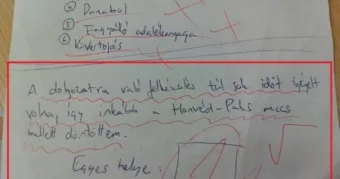 a Danabol
b Fagyálló adalékanyaga
c Kivertojás
A dolgozatra való felkészülés túl sok időt igényelt
volna, így inkább a Honvéd-Paks meccs
mellett döntöttem.
Egyes helye: